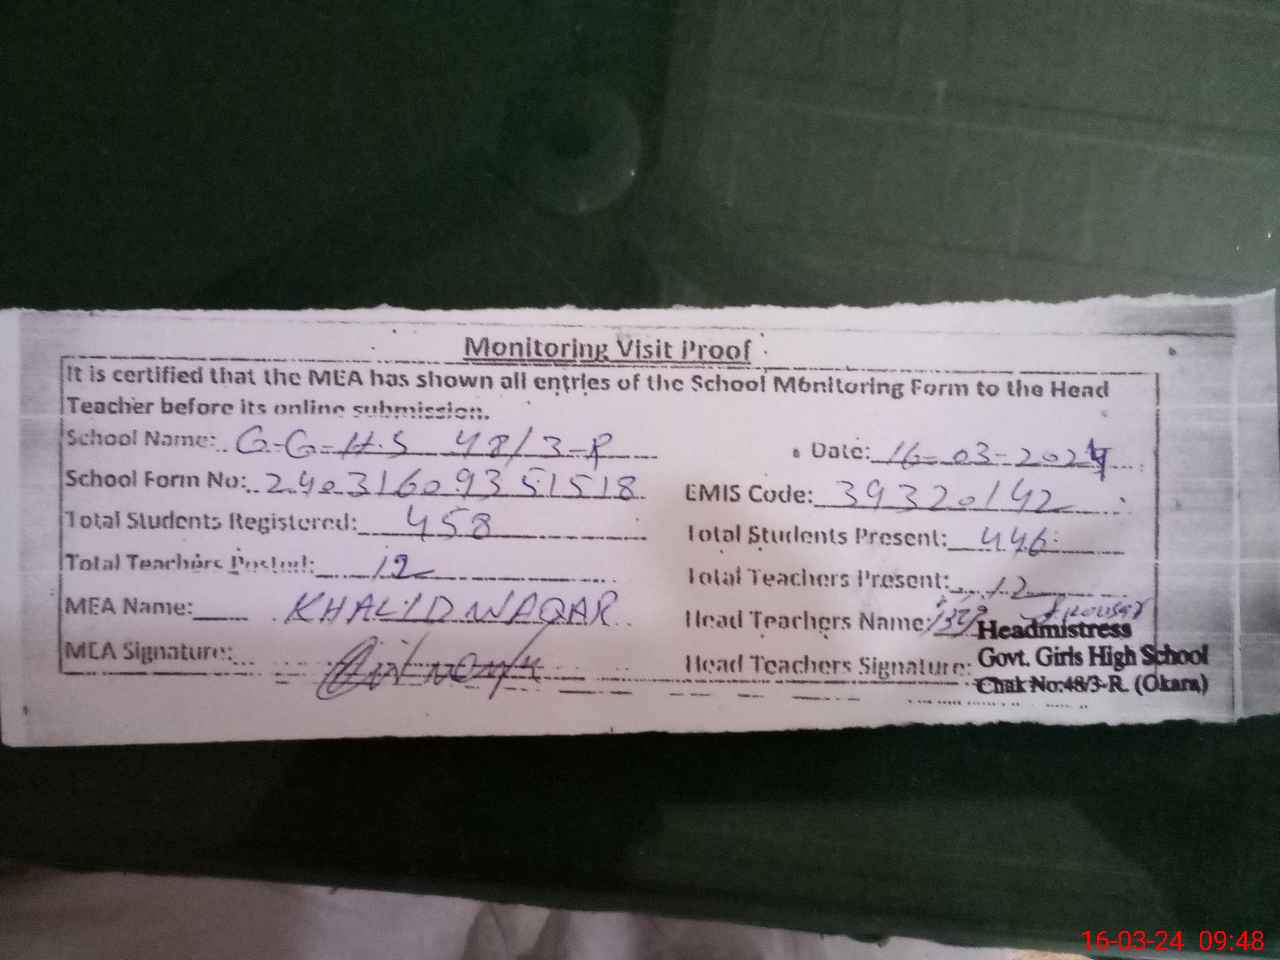 Monitoring Visit Proof
It is certified that the MEA has shown all entries of the School Monitoring Form to the Head
Teacher before its online submission.
School Name: G.G.H.S 48/3-R Date: 16-03-2024
School Form No: 24031609351518 EMIS Code: 39320142
Total Students Registered: 458 Total Students Present: 446
Total Teachers Posted: 12 Total Teachers Present: 12
MEA Name: KHALID WAQAR Head Teachers Name:
Headmistress
MEA Signature: Head Teachers Signature: Govt. Girls High School
Chak No:48/3-R. (Okara)
16-03-24 09:48